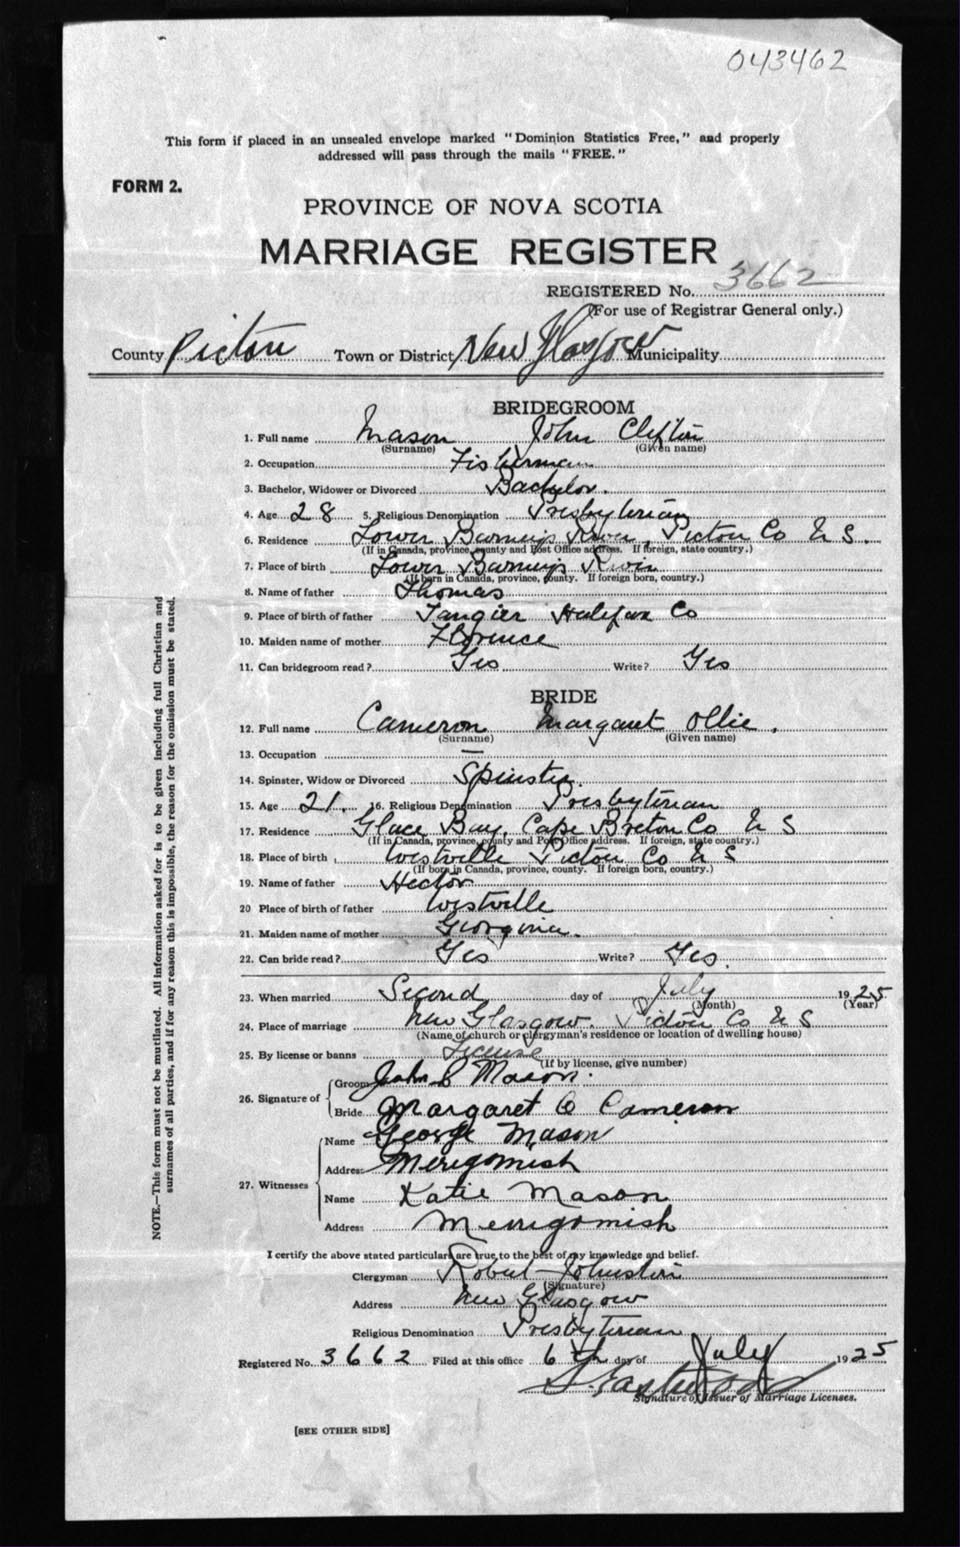 043462
This form if placed in an unsealed envelope marked "Dominion Statistics Free," and properly
addressed will pass through the mails "FREE."
FORM 2.
PROVINCE OF NOVA SCOTIA
MARRIAGE REGISTER
REGISTERED No. 3662
(For use of Registrar General only.)
County Pictou Town or District New Glasgow Municipality
BRIDEGROOM
1. Full name Mason John Clifton
(Surname) (Given name)
2. Occupation Fisherman
3. Bachelor, Widower or Divorced Bachelor.
4. Age 28 5. Religious Denomination Presbyterian
6. Residence Lower Barneys River, Pictou Co N S.
(If in Canada, province, county and Post Office address. If foreign, state country.)
7. Place of birth Lower Barneys River
(If born in Canada, province, county. If foreign born, country.)
8. Name of father Thomas
9. Place of birth of father Tangier Halifax Co
10. Maiden name of mother Florence
11. Can bridegroom read? Yes Write? Yes
BRIDE
12. Full name Cameron Margaret Ollie.
(Surname) (Given name)
13. Occupation —
14. Spinster, Widow or Divorced Spinster.
15. Age 21. 16. Religious Denomination Presbyterian
17. Residence Glace Bay, Cape Breton Co N S
(If in Canada, province, county and Post Office address. If foreign, state country.)
18. Place of birth Westville Pictou Co N S
(If born in Canada, province, county. If foreign born, country.)
19. Name of father Hector
20 Place of birth of father Westville
21. Maiden name of mother Georgina.
22. Can bride read? Yes Write? Yes.
23. When married Second day of July 1925
(Month) (Year)
24. Place of marriage New Glasgow. Pictou Co N S
(Name of church or clergyman's residence or location of dwelling house)
25. By license or banns License
(If by license, give number)
26. Signature of Groom John C Mason.
Bride Margaret O Cameron
27. Witnesses Name George Mason
Address Merigomish
Name Katie Mason
Address Merrigomish
I certify the above stated particulars are true to the best of my knowledge and belief.
Clergyman Robert Johnston
(Signature)
Address New Glasgow
Religious Denomination Presbyterian
Registered No. 3662 Filed at this office 6th day of July 1925
Signature of Issuer of Marriage Licenses.
[SEE OTHER SIDE]
NOTE.—This form must not be mutilated. All information asked for is to be given including full Christian and
surnames of all parties, and if for any reason this is impossible, the reason for the omission must be stated.